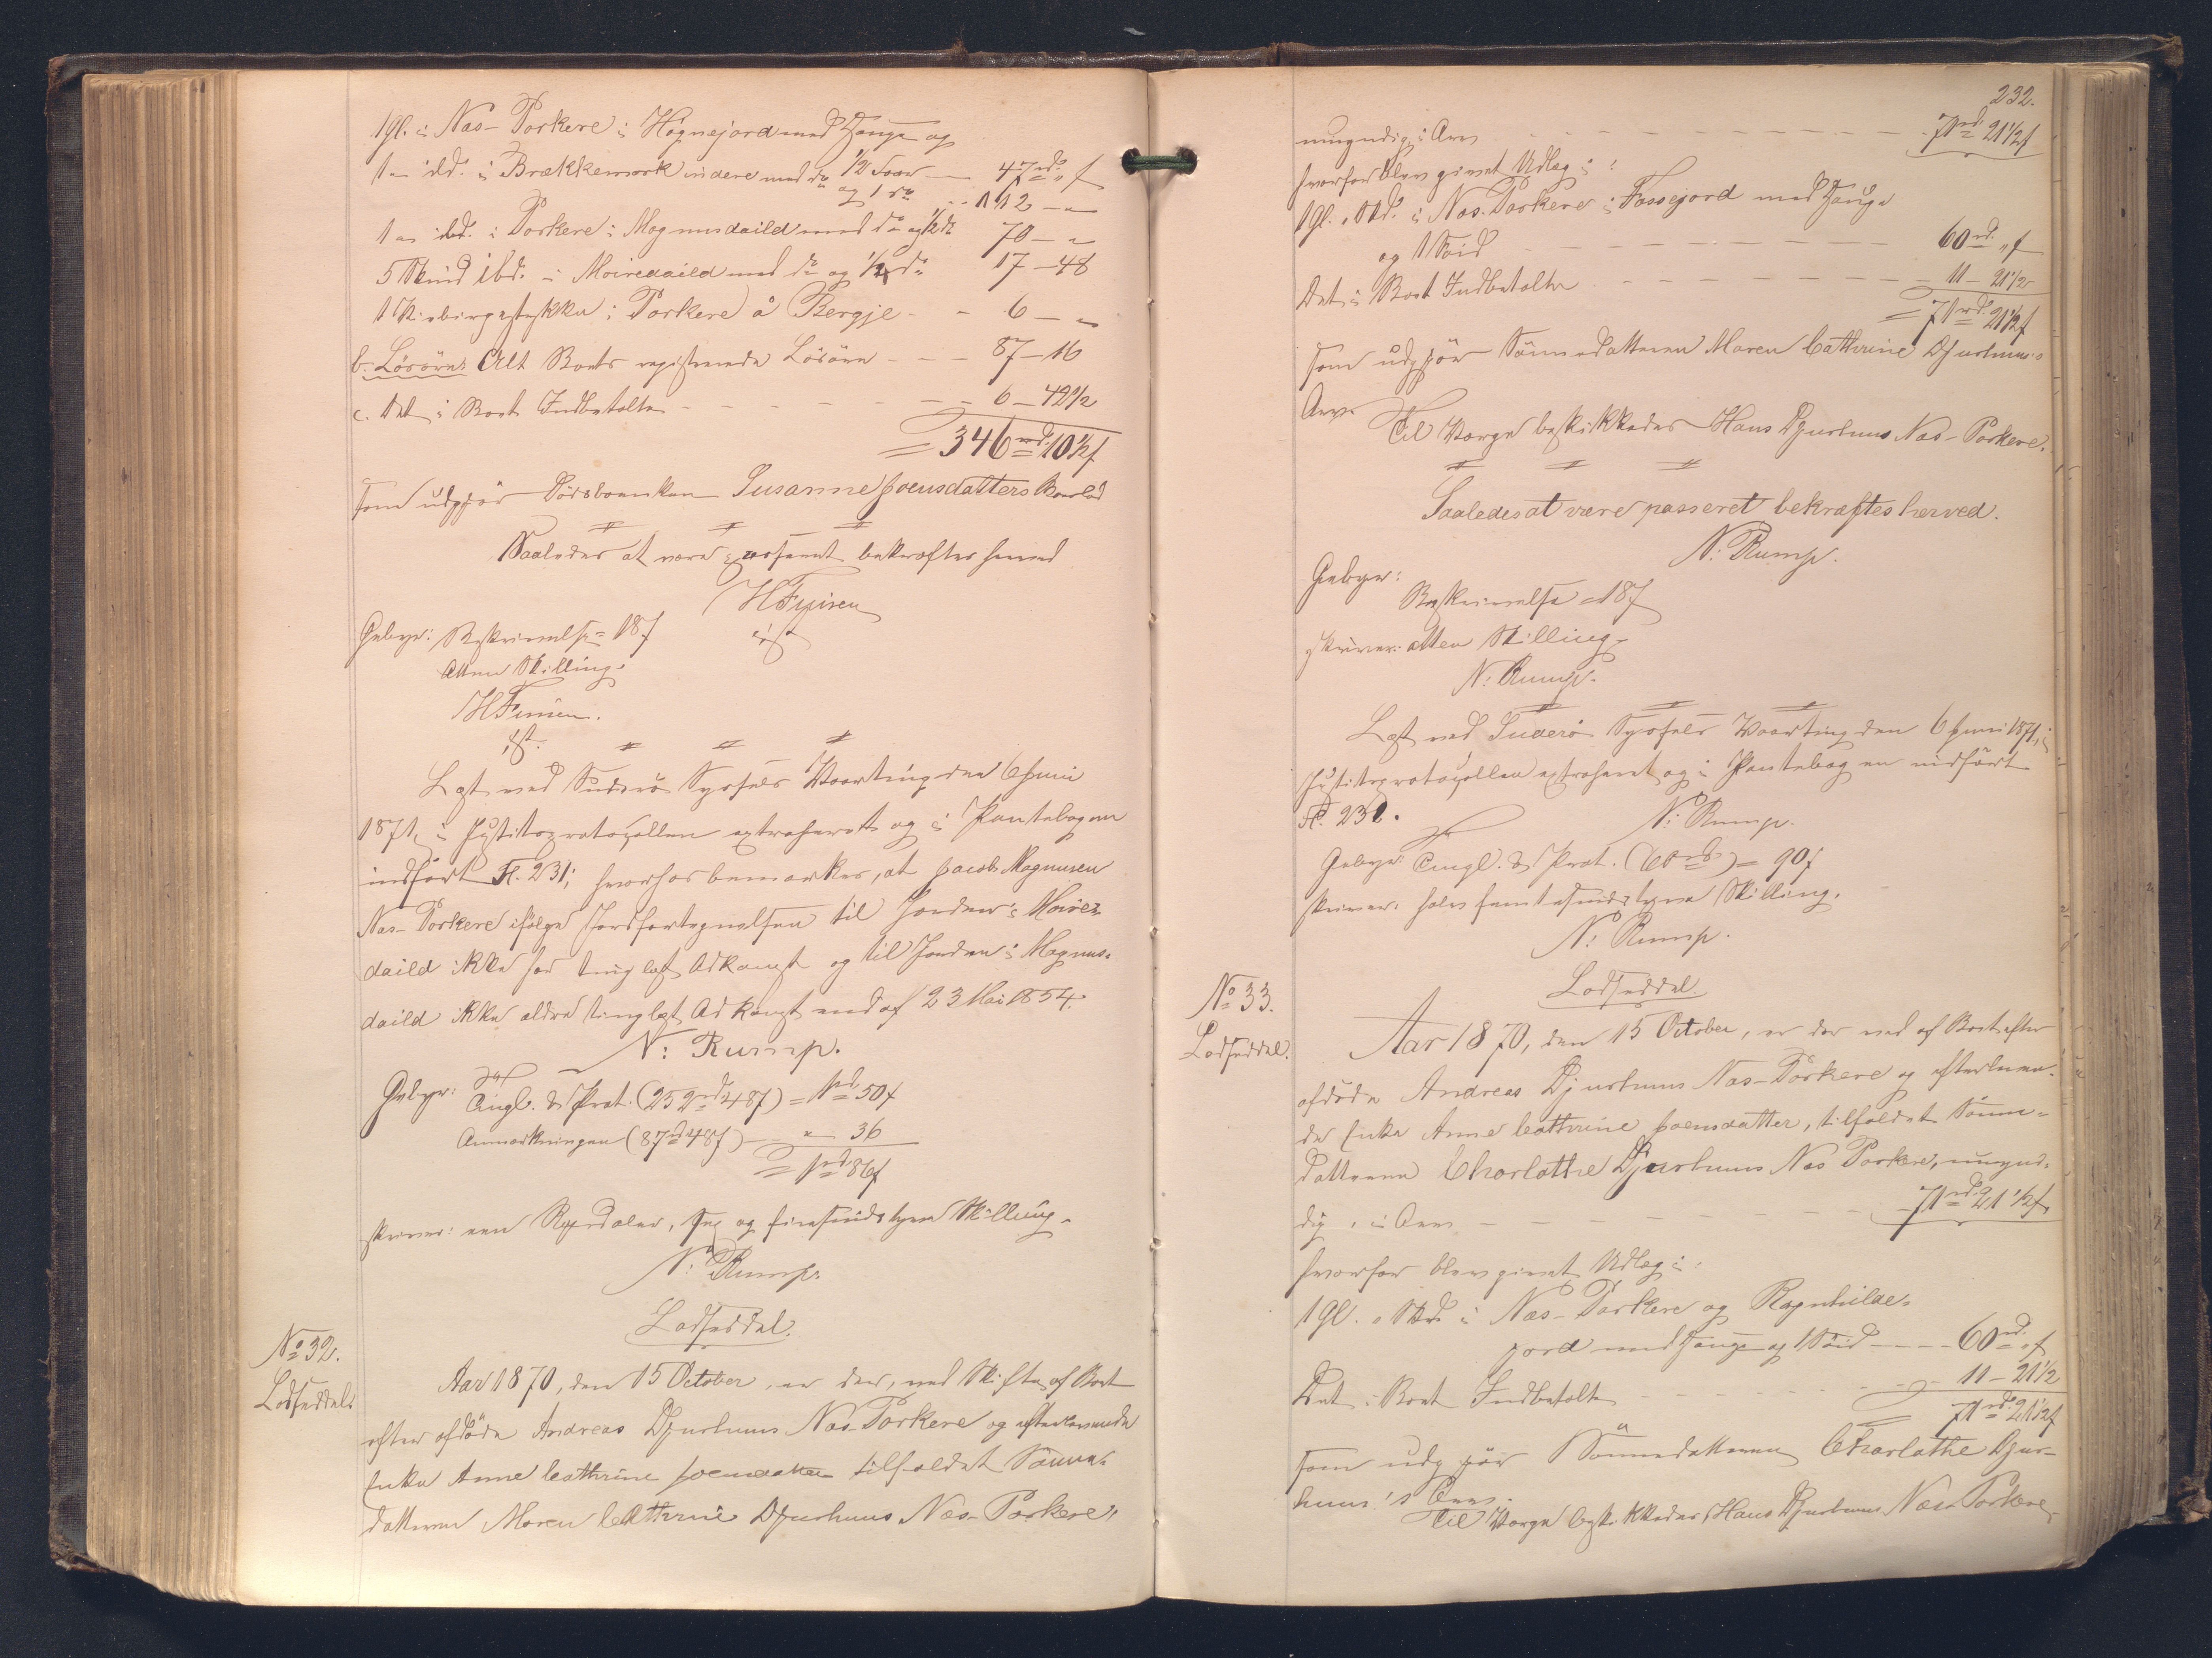 1 Gl. i Næs-Porkere i Høgnejord med Hauge og
1 - ibd. i Brækkemörk indere med do 1/2 Soav — 47rd. " ſ
og 1 do - - 112 — "
1 - ibd. i Porkere i Magnusdaild med do og 1/2 do 70 — "
5 Skind ibd. i Moiredaild med do og 1/2 do 17 — 48
i Porkere å Bergje - - 6 — "
b. Lösöre: Alt Boets registrerede Lösöre - - - 87 — 16
c. Det i Boet Indbetalte - - - - - 6 — 42 1/2
= 346rd. 10 1/2 ſ
som udgjör Susanne Joensdatters Boeslod
Saaledes at være passeret bekræftes herved
HFinsen
cst
Gebyr: Beskrivelse = 18 ſ
Atten Skilling.
HFinsen.
cst.
Læst ved Suderö Syssels Vaarting den 6 Juni
1871, i Justitsprotocollen extraheret og i Pantebogen
indfört Fl. 231; hvorhos bemærkes, at Jacob Magnusen
Næs-Porkere ifölge Jordfortegnelsen til Jorden i Moire-
daild ikke har tinglæst Adkomst og til Jorden i Magnus-
daild ikke ældre tinglæst Adkomst end af 23 Mai 1854.
N: Rump.
Gebyr: Tingl. & Prot. (252rd 48 ſ) = 1rd. 50 ſ
Anmærkningen (87rd 48 ſ) - " — 36
= 1rd. 86 ſ
skriver: een Rigsdaler, sex og firesindstyve Skilling.
N: Rump.
Lodseddel.
No 32.
Lodseddel.
Aar 1870, den 15 October, er der, ved Skifte af Boet
efter afdöde Andreas Djurhuus Næs-Porkere og efterlevende
Enke Anne Cathrine Joensdatter tilfaldet Sönne-
datteren Maren Cathrine Djurhuus Næs-Porkere,
232.
umyndig, i Arv - - - - - 71rd. 21 1/2 ſ
hvorfor blev givet Udlæg i:
1 Gl. i Næs-Porkere i Fossejord med Hauge
og 1 Soid - - - - - 60rd. " ſ
Det i Boet Indbetalte - - - - - 11 — 21 1/2
= 71rd. 21 1/2 ſ
som udgjör Sönnedatteren Maren Cathrine Djurhuus's
Arv.
Til Værge beskikkedes Hans Djurhuus Næs-Porkere.
Saaledes at være passeret bekræftes herved.
N: Rump.
Gebyr:
Beskrivelse = 18 ſ
skriver: atten Skilling.
N: Rump.
Læst ved Suderö Syssels Vaarting den 6 Juni 1871, i
Justitsprotocollen extraheret og i Pantebogen indfört
Fl. 231.
N: Rump.
Gebyr: Tingl. & Prot. (60rd.) = 90 ſ
skriver: halvfemtesindstyve Skilling.
N: Rump.
Lodseddel.
No 33.
Lodseddel.
Aar 1870, den 15 October, er der ved af Boet efter
afdöde Andreas Djurhuus Næs-Porkere og efterleven-
de Enke Anne Cathrine Joensdatter, tilfaldet Sönne-
datteren Charlothe Djurhuus Næs Porkere, umyn-
dig, i Arv - - - - - 71rd. 21 1/2 ſ
hvorfor blev givet Udlæg i:
1 Gl. i Næs-Porkere og Ragnhilde-
jord med Hauge og 1 Soid - - - - 60rd. " ſ
Det i Boet Indbetalte - - - - - 11 — 21 1/2
= 71rd. 21 1/2 ſ
som udgjör Sönnedatteren Charlothe Djur-
huus's Arv.
Til Værge beskikkedes Hans Djurhuus Næs-Porkere,